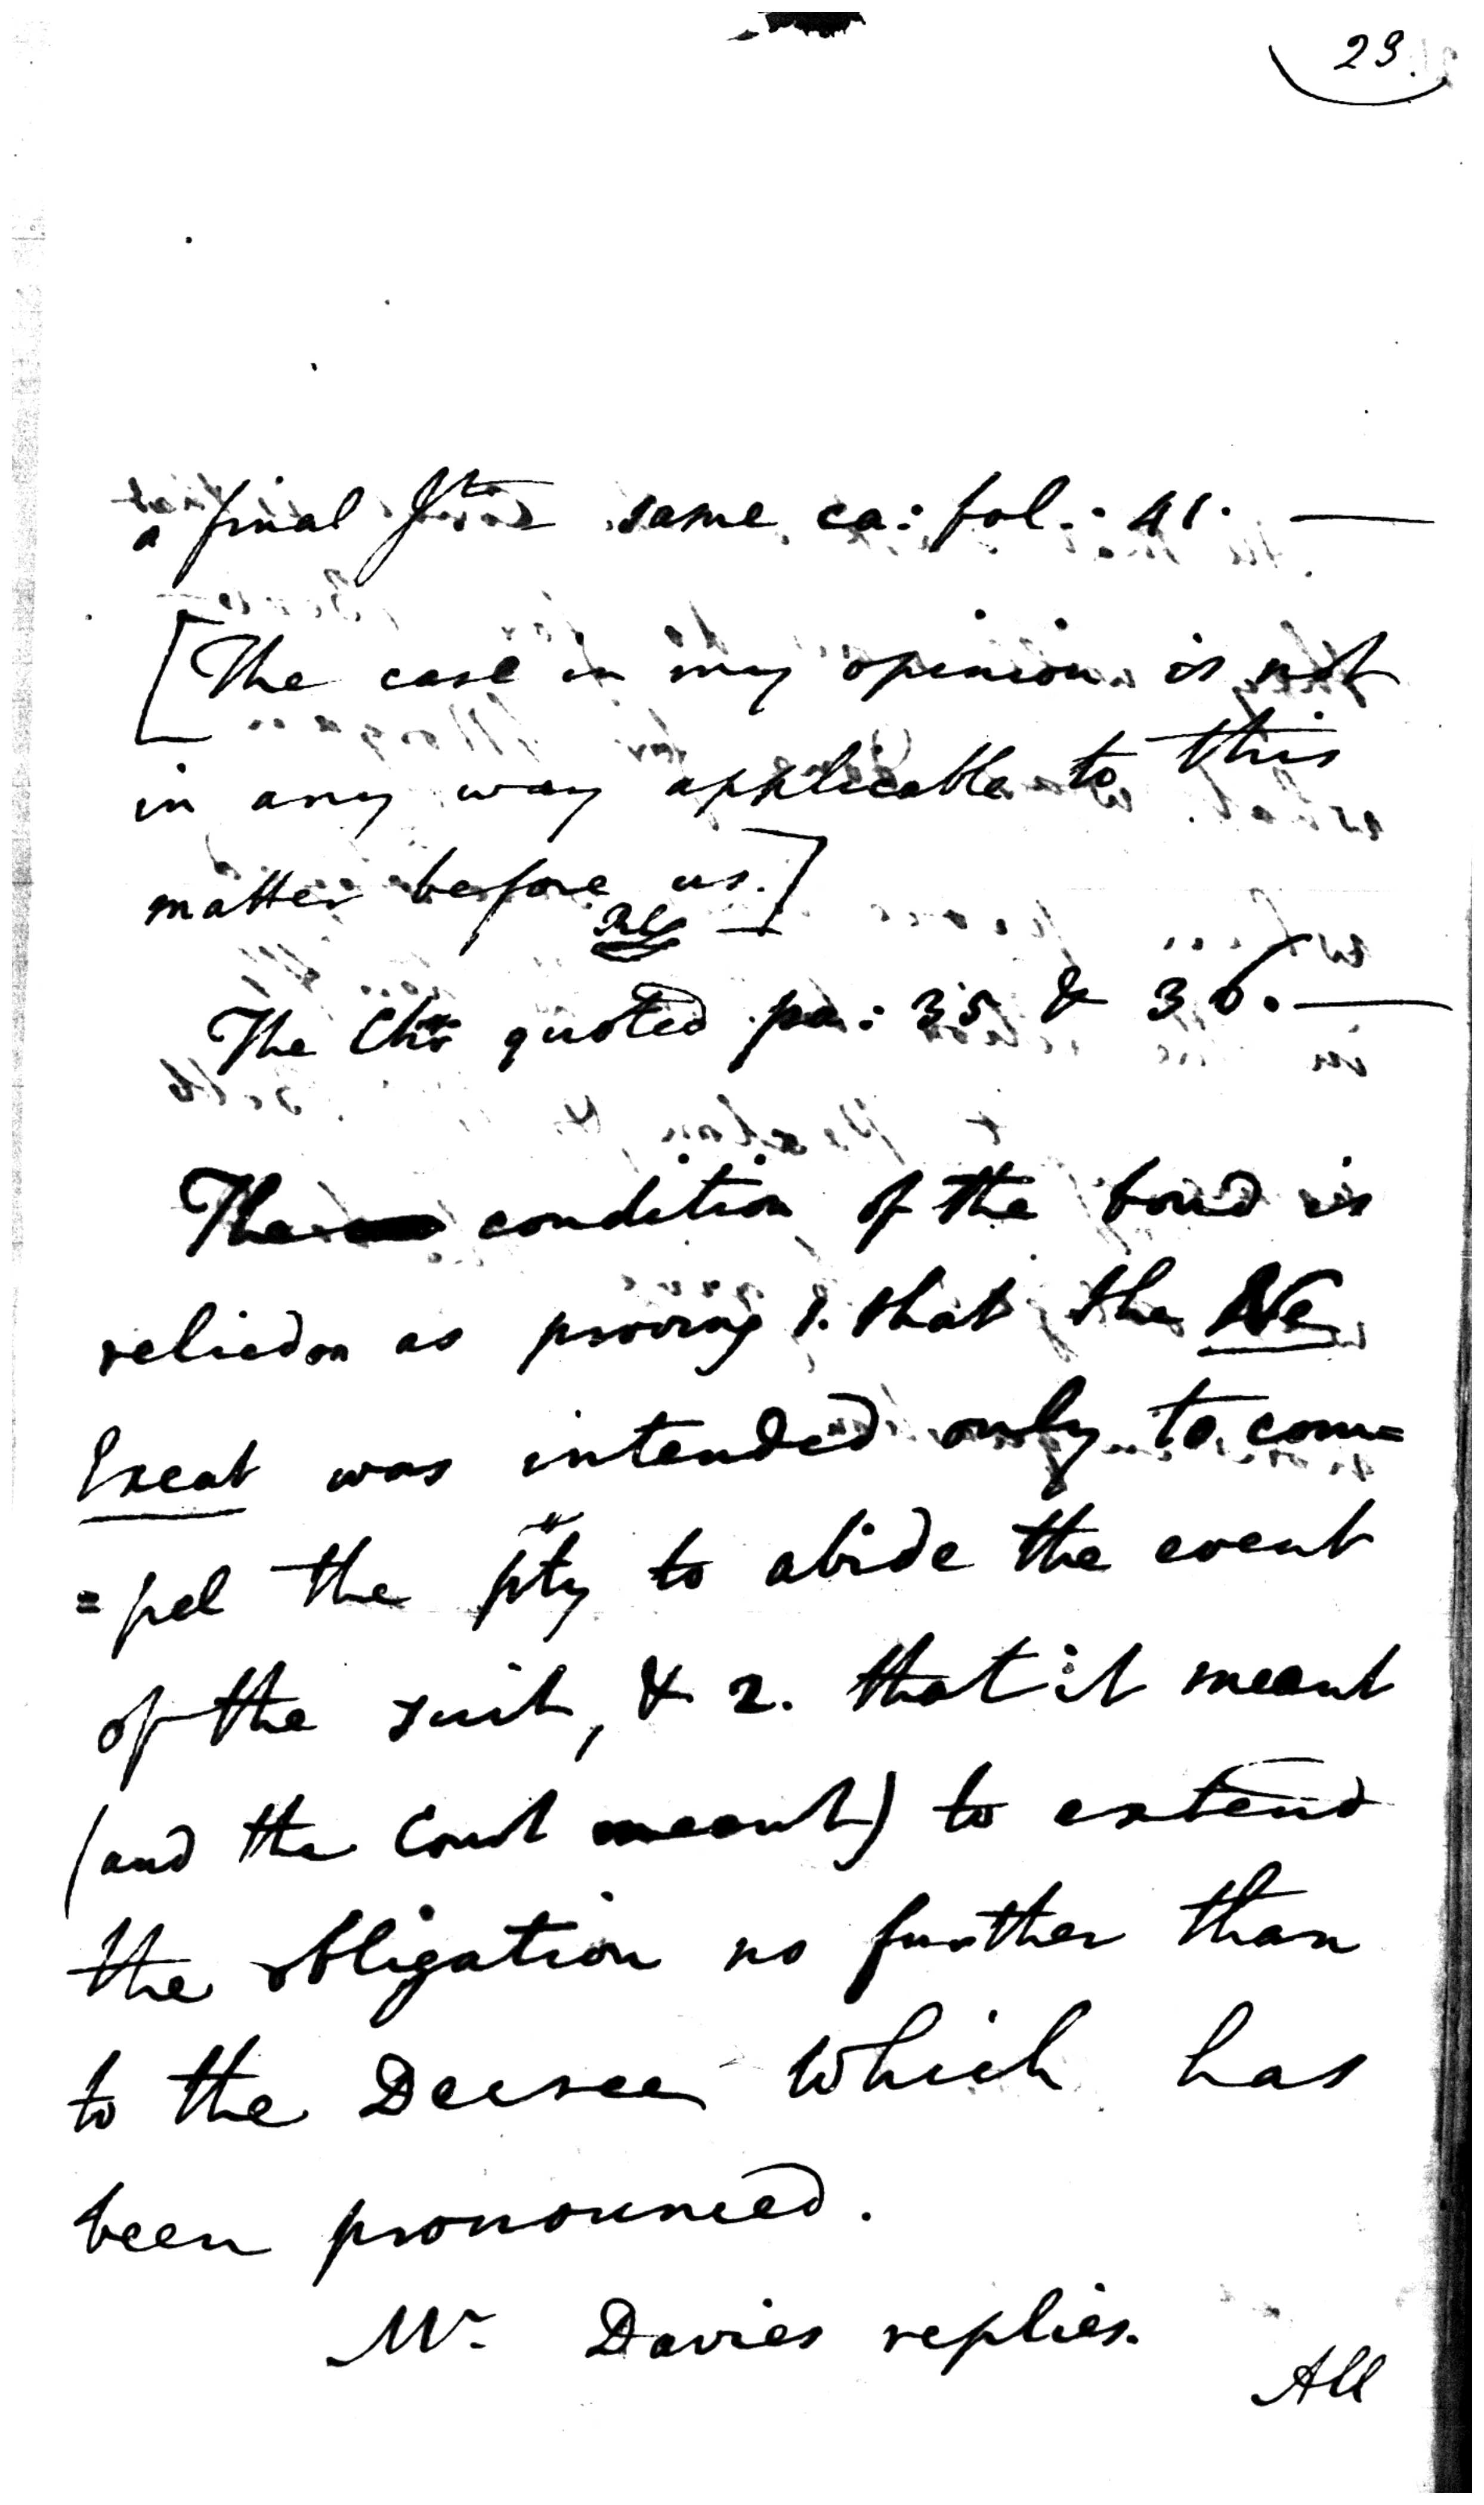 29.
a final same ca: fol.: 41. —
[The case in my opinion is not
in any way applicable to this
matter before us.]
The quoted pa: 35 & 36. —
The condition of the bond is
relied on as proving 1. that the Ne
Exeat was intended only to com=
=pel the pty to abide the event
of the suit, & 2. that it meant
(and the Court meant) to extend
the obligation no further than
to the Decree which has
been pronounced.
Mr. Davies replies.
All